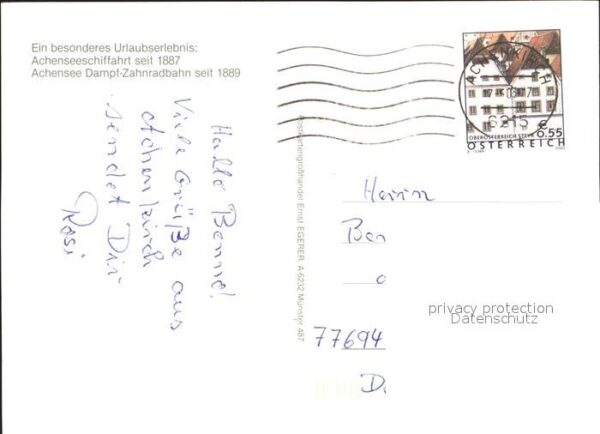 Ein besonderes Urlaubserlebnis:
Achenseeschiffahrt seit 1887
Achensee Dampf-Zahnradbahn seit 1889
Hallo Bennd!
Viele Grüße aus
Achenkirch
sendet Dir
Rosi
Postkartengroßhandel Ernst EGERER, A-6232 Münster 487
6215
OBERÖSTERREICH STEYR
€ 0.55
ÖSTERREICH
Herrn
Ber
privacy protection
Datenschutz
77694
D.